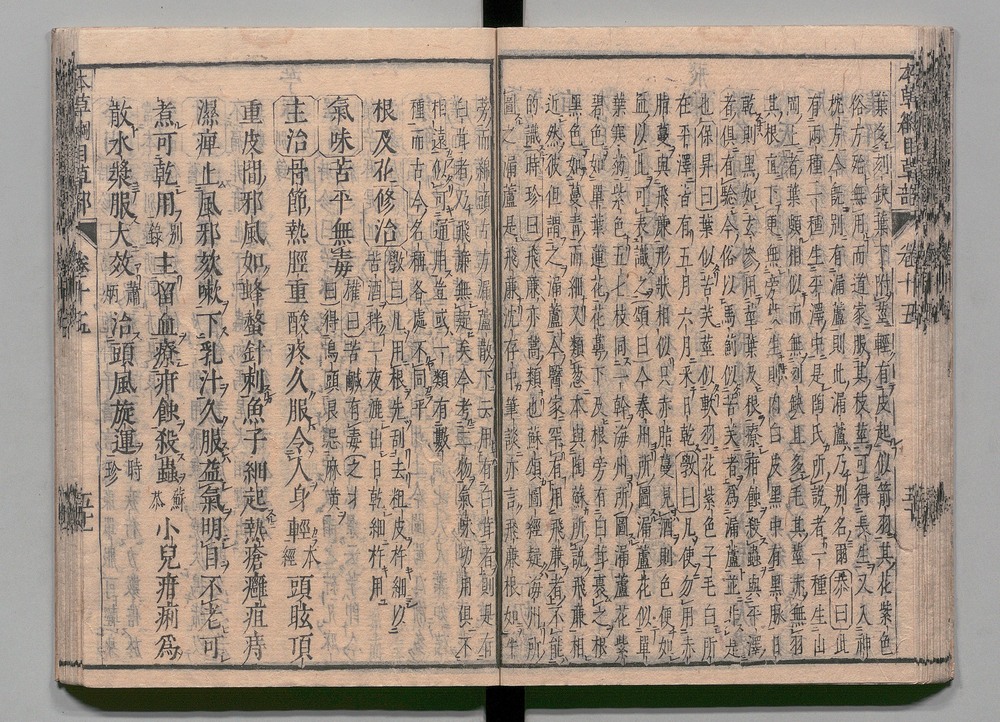 葉多刻缺葉下附莖輕有皮起似箭羽其花紫色
俗方殆無用而道家服其枝莖可得長生又入神
枕方今既別有漏蘆則此漏蘆乃別名爾恭曰此
有兩種一種生平澤中是陶氏所說者一種生山
岡上者葉頗相似而無疏缺且多毛其莖赤無羽
其根直下更無旁枝生則肉白皮黑中有黑脈日
乾則黑如玄參用莖葉及根療疳蝕殺蟲與平澤
者俱有驗今俗以馬薊似苦芺者為漏蘆並非是
也保昇曰葉似苦芺莖似軟羽花紫色子毛白所
在平澤皆有五月六月采日乾斅曰凡使勿用赤
脂蔓與飛廉形狀相似只赤脂蔓見酒則色便如
血以此可表識之頌曰今秦州所圖漏蘆花似單
葉寒菊紫色五七枝同一幹海州所圖漏蘆花紫
碧色如單葉蓮花花萼下及根旁有白茸裹之根
黑色如蔓菁而細又類葱本與陶蘇所說飛廉相
近然彼但謂之漏蘆今醫家罕有用飛廉者不能
的識時珍曰飛廉亦蒿類也蘇頌圖經疑海州所
圖之漏蘆是飛廉沈存中筆談亦言飛廉根如牛
蒡而綿頭古方漏蘆散下云用有白茸者則是有
白茸者乃飛廉無疑矣今考二物氣味功用俱不
相遠似可通用豈或一類有數
種而古今名稱各處不同乎
根及花修治斅曰凡用根先刮去粗皮杵細以
苦酒拌一夜漉出日乾細杵用
氣味苦平無毒權曰苦鹹有毒之才
曰得烏頭良惡麻黃
主治骨節熱脛重酸疼久服令人身輕本經頭眩頂
重皮間邪風如蜂螫針刺魚子細起熱瘡癰疽痔
濕痺止風邪欬嗽下乳汁久服益氣明目不老可
煮可乾用別錄主留血療疳蝕殺蟲蘇恭小兒疳痢為
散水漿服大效蕭炳治頭風旋運時珍